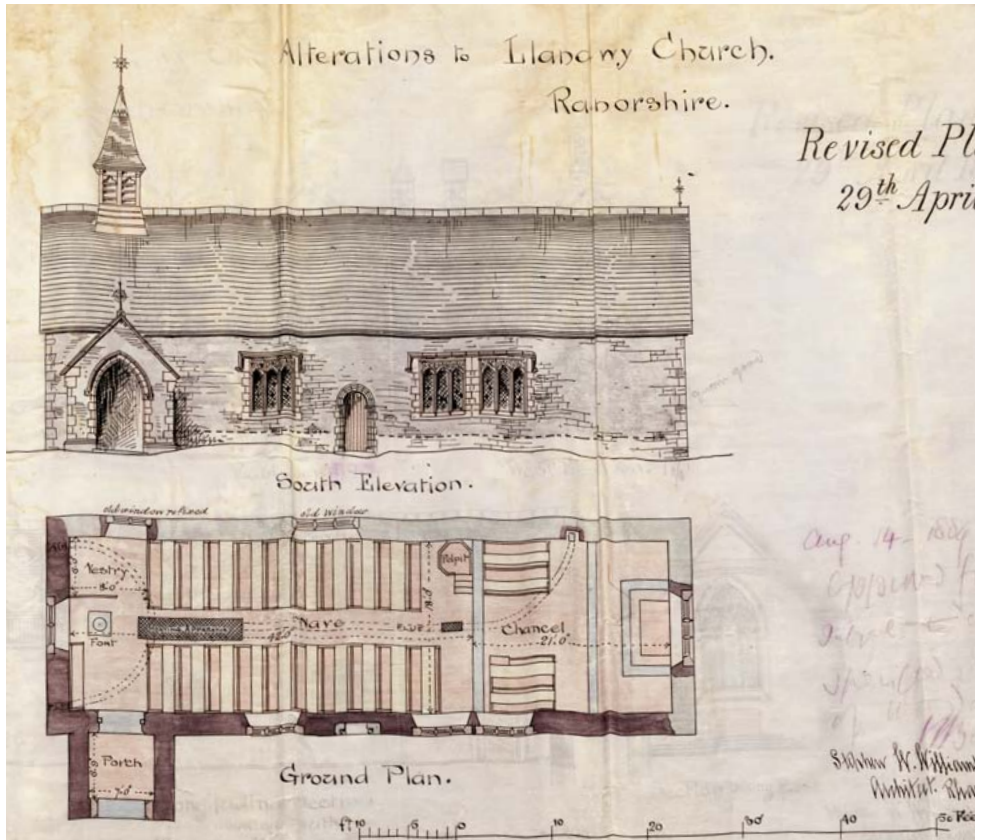 Alterations to Llandwy Church.
Radnorshire.
Revised Pl
29th Apri
South Elevation.
old window refixed
old window
Vestry
8.0"
Pulpit
Nave
42.0"
Font
Chancel
21.0"
Porch
7.0"
Ground Plan.
Aug. 14- 1886
Stephen W. William
Architect. Rha
ft 10 5 0 10 20 30 40 50 Fee